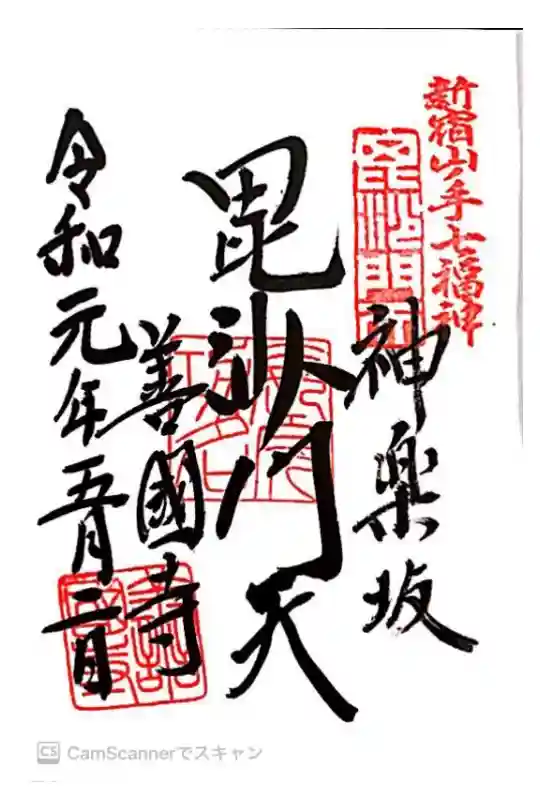 新宿山ノ手七福神
神楽坂
毘沙門天
善國寺
令和元年五月二日
CS CamScannerでスキャン